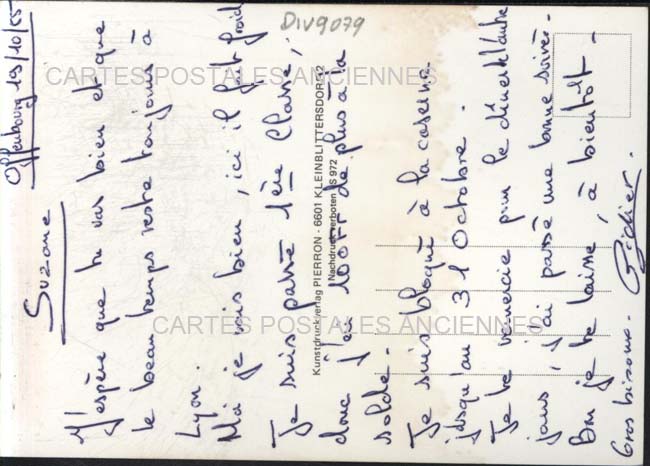 Offenbourg 19/10/85
Suzanne
J'espère que tu vas bien et que
le beau temps reste toujours à
Lyon.
Moi je vais bien, ici il fait froid
Je suis passé 1ère Classe,
donc j'ai 100FF de plus à la
solde.
Je suis bloqué à la caserne
jusqu'au 31 Octobre.
Je te remercie pour le dîner de l'autre
jour, j'ai passé une bonne soirée.
Bon je te laisse, à bientôt -
Gros bisous. Didier.
DIV9079
Kunstdruckverlag PIERRON - 6601 KLEINBLITTERSDORF 2
Nachdruck verboten S 972
CARTES POSTALES ANCIENNES
CARTES POSTALES ANCIENNES